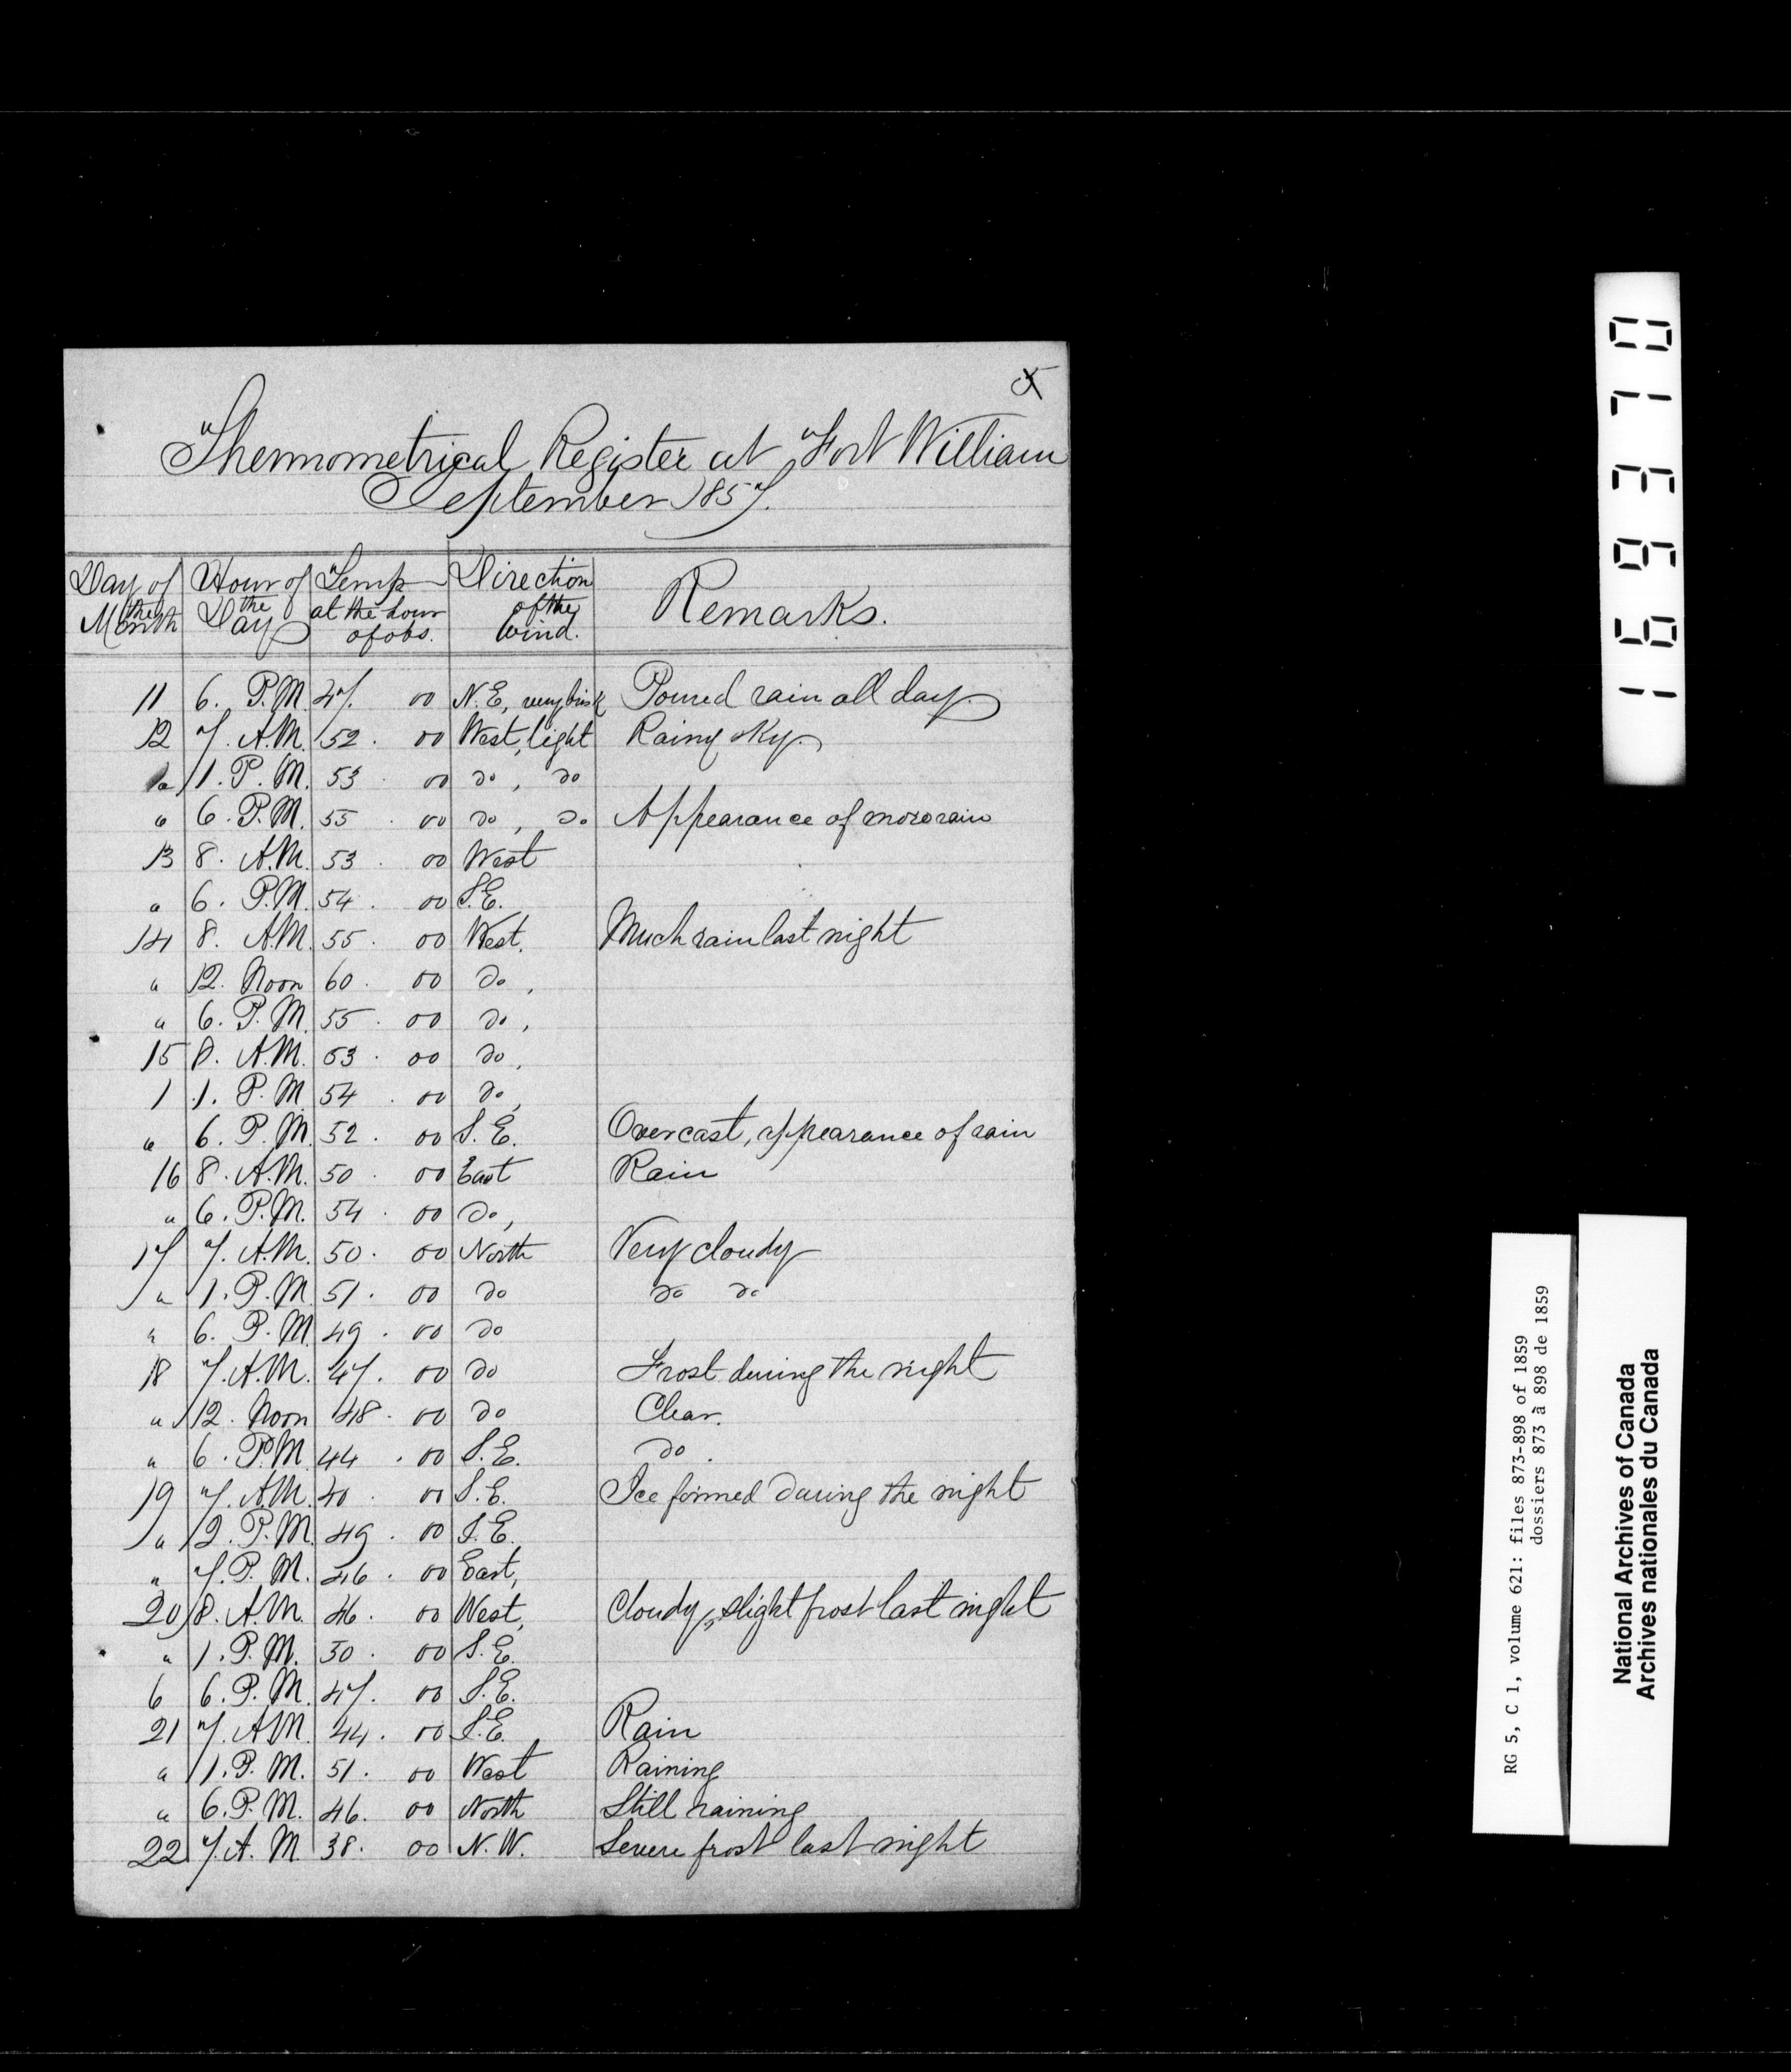 5
Thermometrical Register at Fort William
September 1857.
Day of the Month Hour of the Day Temp at the hour of obs. Direction of the Wind. Remarks.
11 6. P.M. 47. 00 N.E, very brisk Poured rain all day.
12 7. A.M. 52. 00 West, light Rainy sky.
" 1. P.M. 53. 00 do, do
" 6. P.M. 55. 00 do, do Appearance of more rain
13 8. A.M. 53. 00 West
" 6. P.M. 54. 00 S.E.
14 8. A.M. 55. 00 West. Much rain last night
" 12. Noon 60. 00 do,
" 6. P.M. 55. 00 do,
15 8. A.M. 53. 00 do,
1 1. P.M 54. 00 do,
" 6. P.M. 52. 00 S.E. Overcast, appearance of rain
16 8. A.M. 50. 00 East Rain
" 6. P.M. 54. 00 do,
17 7. A.M. 50. 00 North Very cloudy
" 1. P.M. 51. 00 do do do
" 6. P.M 49. 00 do
18 7. A.M. 47. 00 do Frost during the night
" 12. Noon 48. 00 do Clear.
" 6. P.M. 44. 00 S.E. do.
19 7. A.M. 40. 00 S.E. Ice formed during the night
" 2. P.M. 49. 00 S.E.
" 7. P.M. 46. 00 East,
20 8. A.M. 46. 00 West, Cloudy, slight frost last night
" 1. P.M. 50. 00 S.E.
6 6. P.M. 47. 00 S.E.
21 7. A.M. 44. 00 S.E. Rain
" 1. P.M. 51. 00 West Raining
" 6. P.M. 46. 00 North Still raining
22 7. A.M. 38. 00 N.W. Severe frost last night
169370
RG 5, C 1, volume 621: files 873-898 of 1859
dossiers 873 à 898 de 1859
National Archives of Canada
Archives nationales du Canada